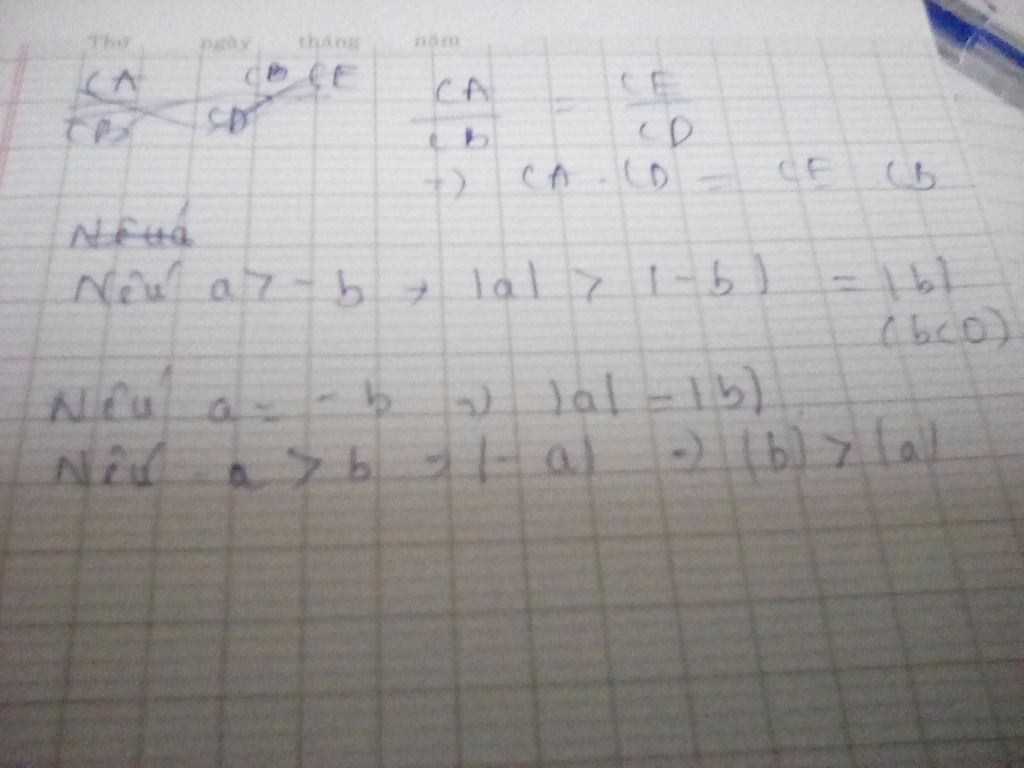 Thứ ngày tháng năm
CA CB CE CA = CE
CB CD CB CD
=> CA . CD = CE CB
Nếu a > - b → |a| > |-b| = |b|
(b<0)
Nếu a = - b => |a| = |b|
Nếu - a > b => |- a| => |b| > |a|